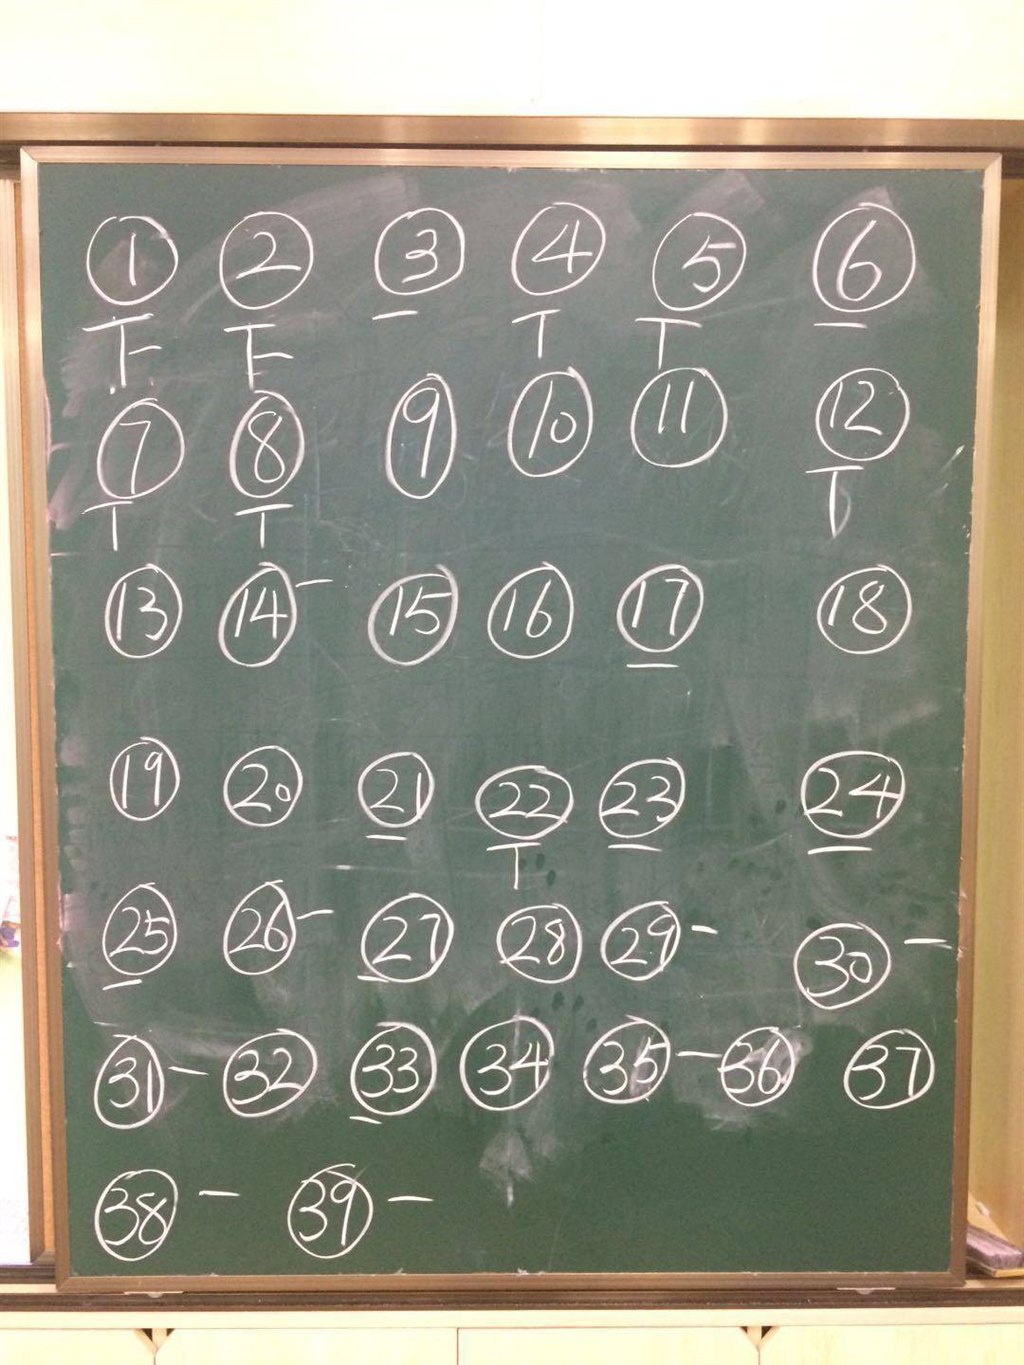 ① ② ③ ④ ⑤ ⑥
下 下 一 T T 一
⑦ ⑧ ⑨ ⑩ ⑪ ⑫
T T T
⑬ ⑭ 一 ⑮ ⑯ ⑰ ⑱
一
⑲ ⑳ ㉑ ㉒ ㉓ ㉔
一 T 一 一
㉕ ㉖ 一 ㉗ ㉘ ㉙ 一 ㉚ 一
一 一
㉛ 一 ㉜ ㉝ ㉞ ㉟ 一 ㊱ ㊲
一
㊳ 一 ㊴ 一